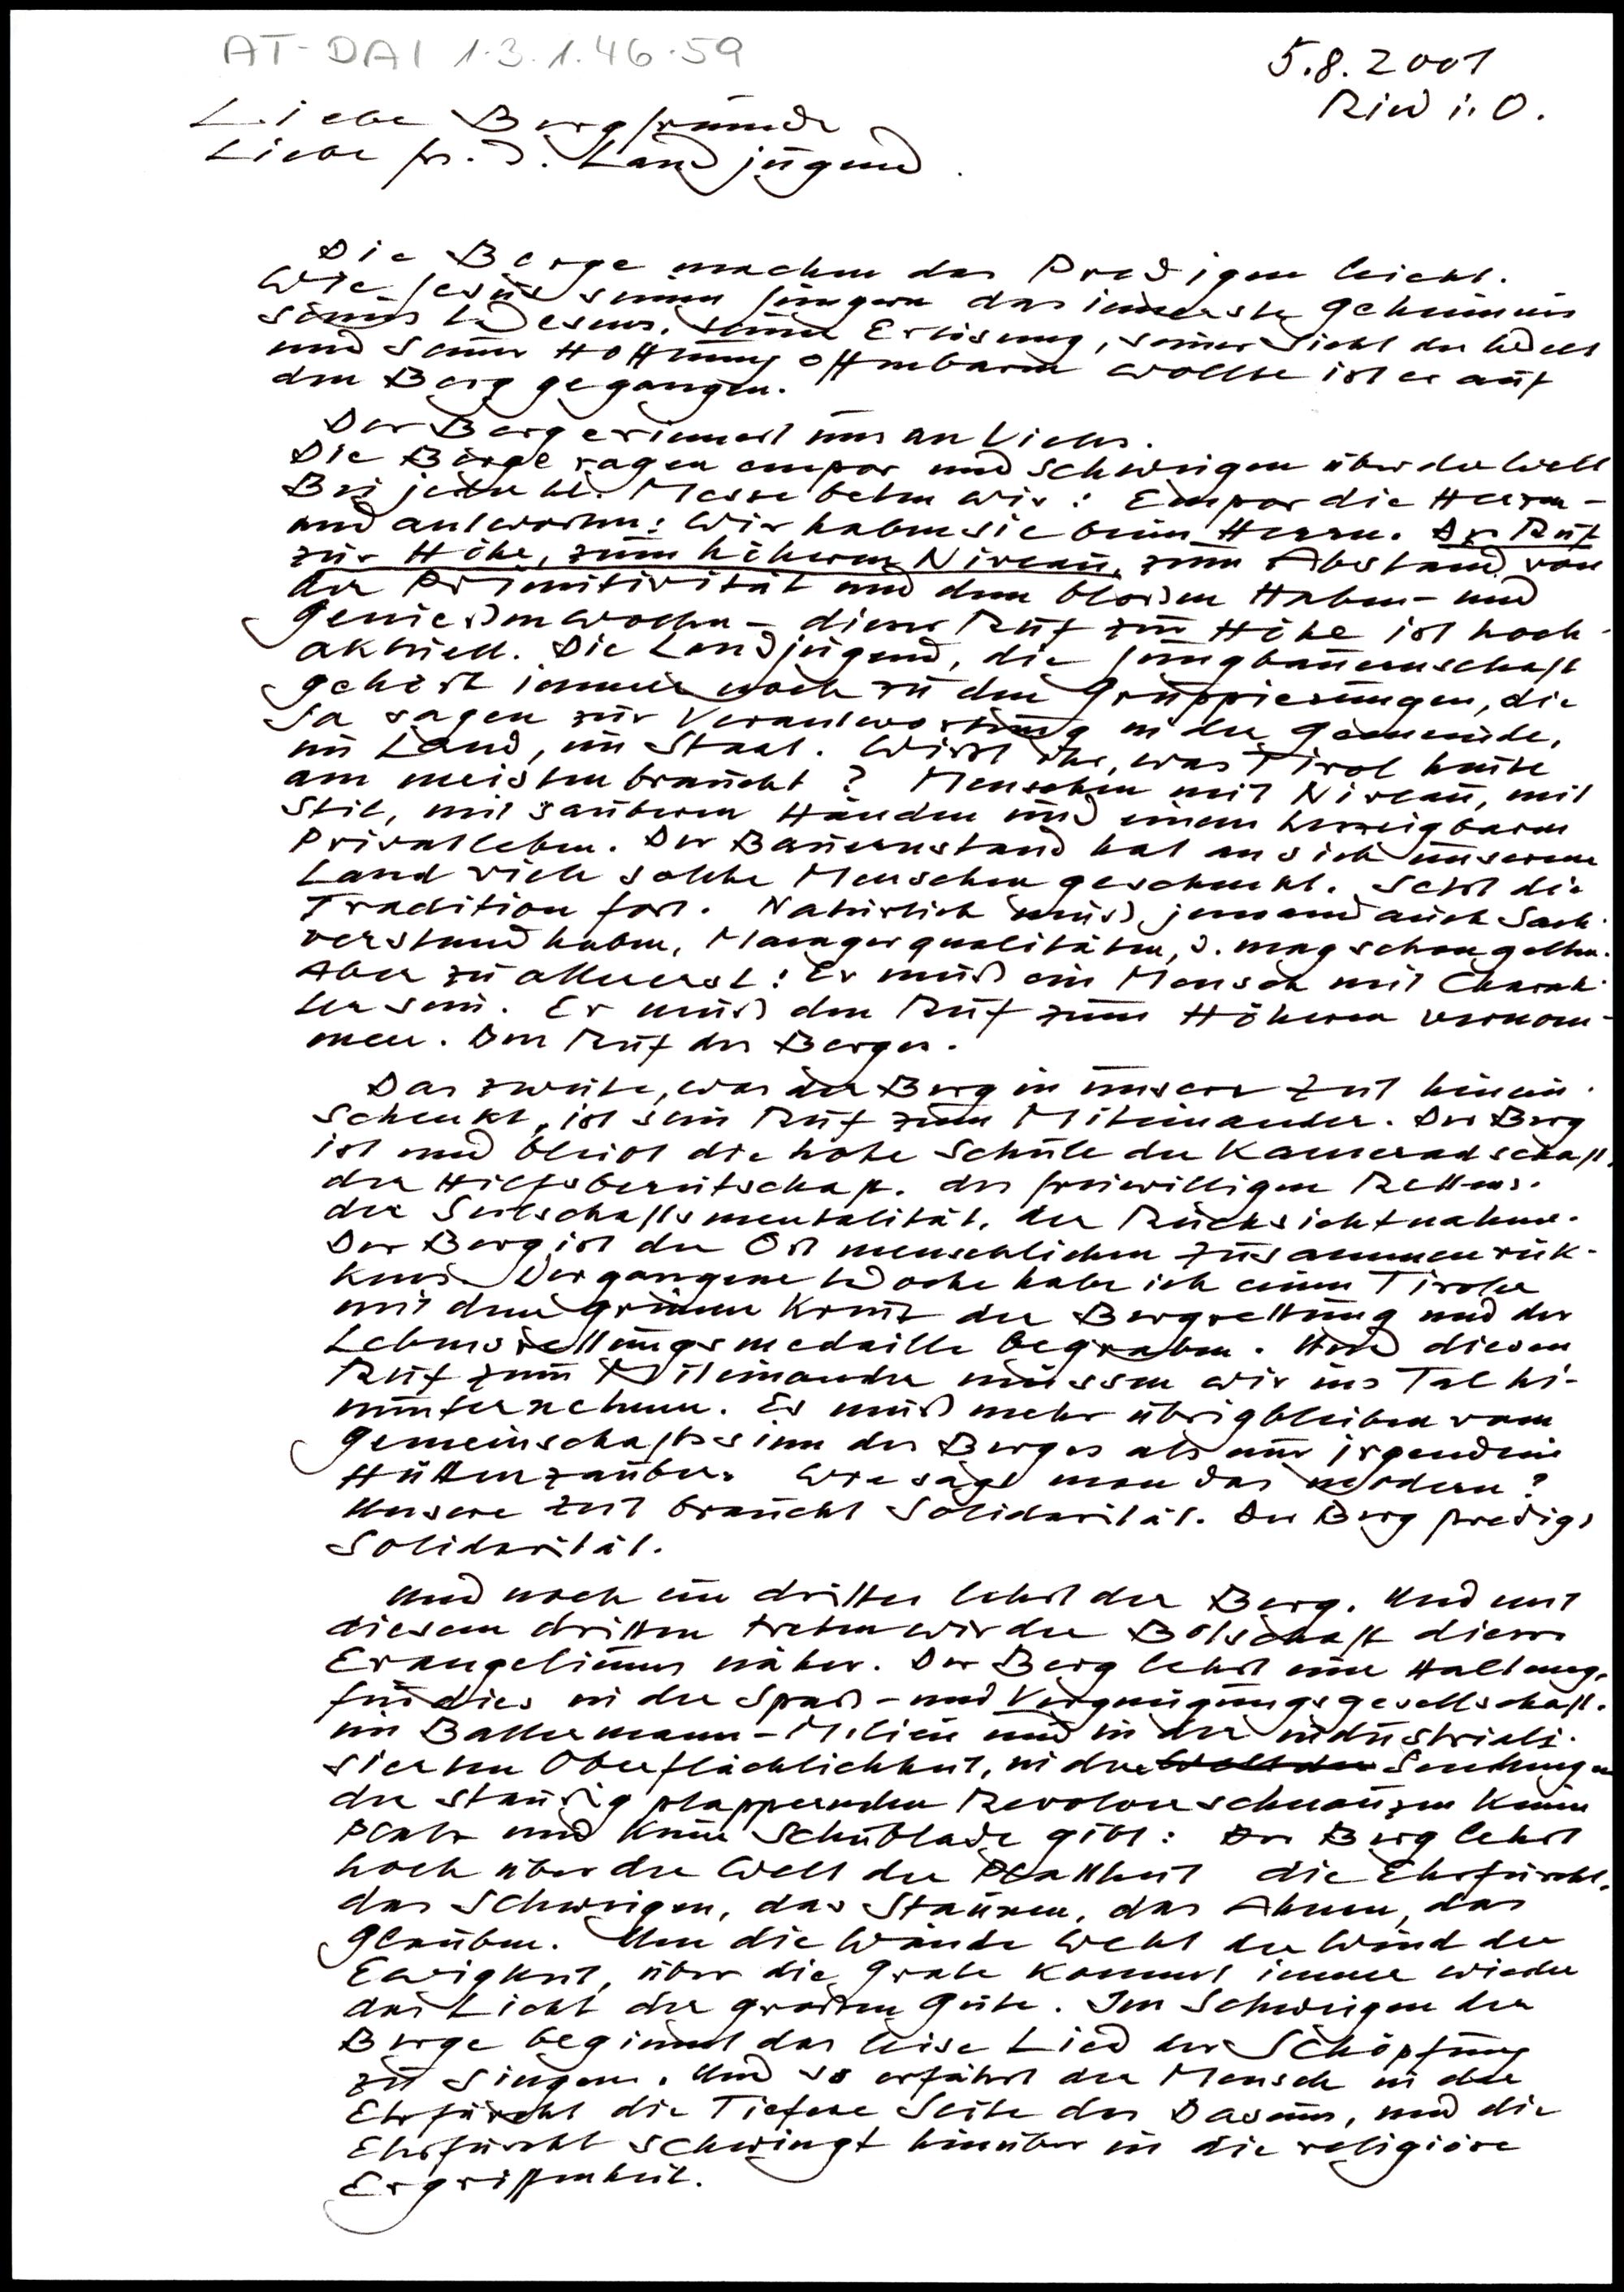 AT-DAI 1.3.1.46.59
5.8.2001
Ried i. O.
Liebe Bergfreunde
Liebe fr. d. Landjugend.
Die Berge machen das Predigen leicht.
Wie Jesus seinen Jüngern das innerste Geheimnis
seines Wesens, seiner Erlösung, seiner Sicht der Welt
und seiner Hoffnung offenbaren wollte ist er auf
den Berg gegangen.
Der Berg erinnert uns an Vieles.
Die Berge ragen empor und schweigen über der Welt
Bei jeder hl. Messe beten wir: Empor die Herzen -
und antworten: Wir haben sie beim Herrn. Der Ruf
zur Höhe, zum höheren Niveau, zum Abstand von
der Primitivität und dem bloßen Haben- und
Genießenwollen - dieser Ruf zur Höhe ist hoch-
aktuell. Die Landjugend, die Jungbauernschaft
gehört immer noch zu den Gruppierungen, die
Ja sagen zur Verantwortung in der Gemeinde,
im Land, im Staat. Wißt ihr, was Tirol heute
am meisten braucht? Menschen mit Niveau, mit
Stil, mit sauberen Händen und einem herzeigbaren
Privatleben. Der Bauernstand hat an sich unserem
Land viele solche Menschen geschenkt. Setzt die
Tradition fort. Natürlich muß jemand auch Sach-
verstand haben, Managerqualitäten, d. mag schon gelten.
Aber zu allererst: Er muß ein Mensch mit Charak-
ter sein. Er muß den Ruf zum Höheren vernom-
men. Den Ruf des Berges.
Das zweite, was der Berg in unsere Zeit hinein-
schenkt, ist sein Ruf zum Miteinander. Der Berg
ist und bleibt die hohe Schule der Kameradschaft,
der Hilfsbereitschaft, des freiwilligen Rettens,
der Seilschaftsmentalität, der Rücksichtnahme.
Der Berg ist der Ort menschlichen Zusammenrük-
kens. Vergangene Woche habe ich einen Tiroler
mit dem grünen Kreuz der Bergrettung und der
Lebensrettungsmedaille begraben. Und diesen
Ruf zum Miteinander müssen wir ins Tal hi-
nunternehmen. Es muß mehr übrigbleiben vom
Gemeinschaftssinn des Berges als nur irgendein
Hüttenzauber. Wie sagt man das modern?
Unsere Zeit braucht Solidarität. Der Berg predigt
Solidarität.
Und noch ein drittes lehrt der Berg. Und mit
diesem dritten treten wir der Botschaft dieses
Evangeliums näher. Der Berg lehrt eine Haltung,
für die es in der Spaß- und Vergnügungsgesellschaft,
im Ballermann-Milieu und in der industriali-
sierten Oberflächlichkeit, in den Welt der Sendungen
der ständig plappernden Revolverschnauzen keinen
Platz und keine Schublade gibt: Der Berg lehrt
hoch über der Welt der Plattheit die Ehrfurcht,
das Schweigen, das Staunen, das Ahnen, das
Glauben. Um die Wände weht der Wind der
Ewigkeit, über die Grate kommt immer wieder
das Licht der großen Güte. Im Schweigen der
Berge beginnt das leise Lied der Schöpfung
zu singen. Und so erfährt der Mensch in der
Ehrfurcht die Tiefere Seite des Daseins, und die
Ehrfurcht schwingt hinüber in die religiöse
Ergriffenheit.